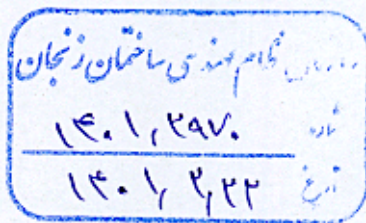 سازمان نظام مهندسی ساختمان زنجان
شماره ۱۴۰۱,۳۹۷۰
تاریخ ۱۴۰۱,۳,۲۲